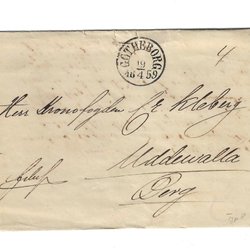 GÖTHEBORG
19
18 4 59
4
Herr Kronofogden C E Kleberg
Uddewalla
Berg